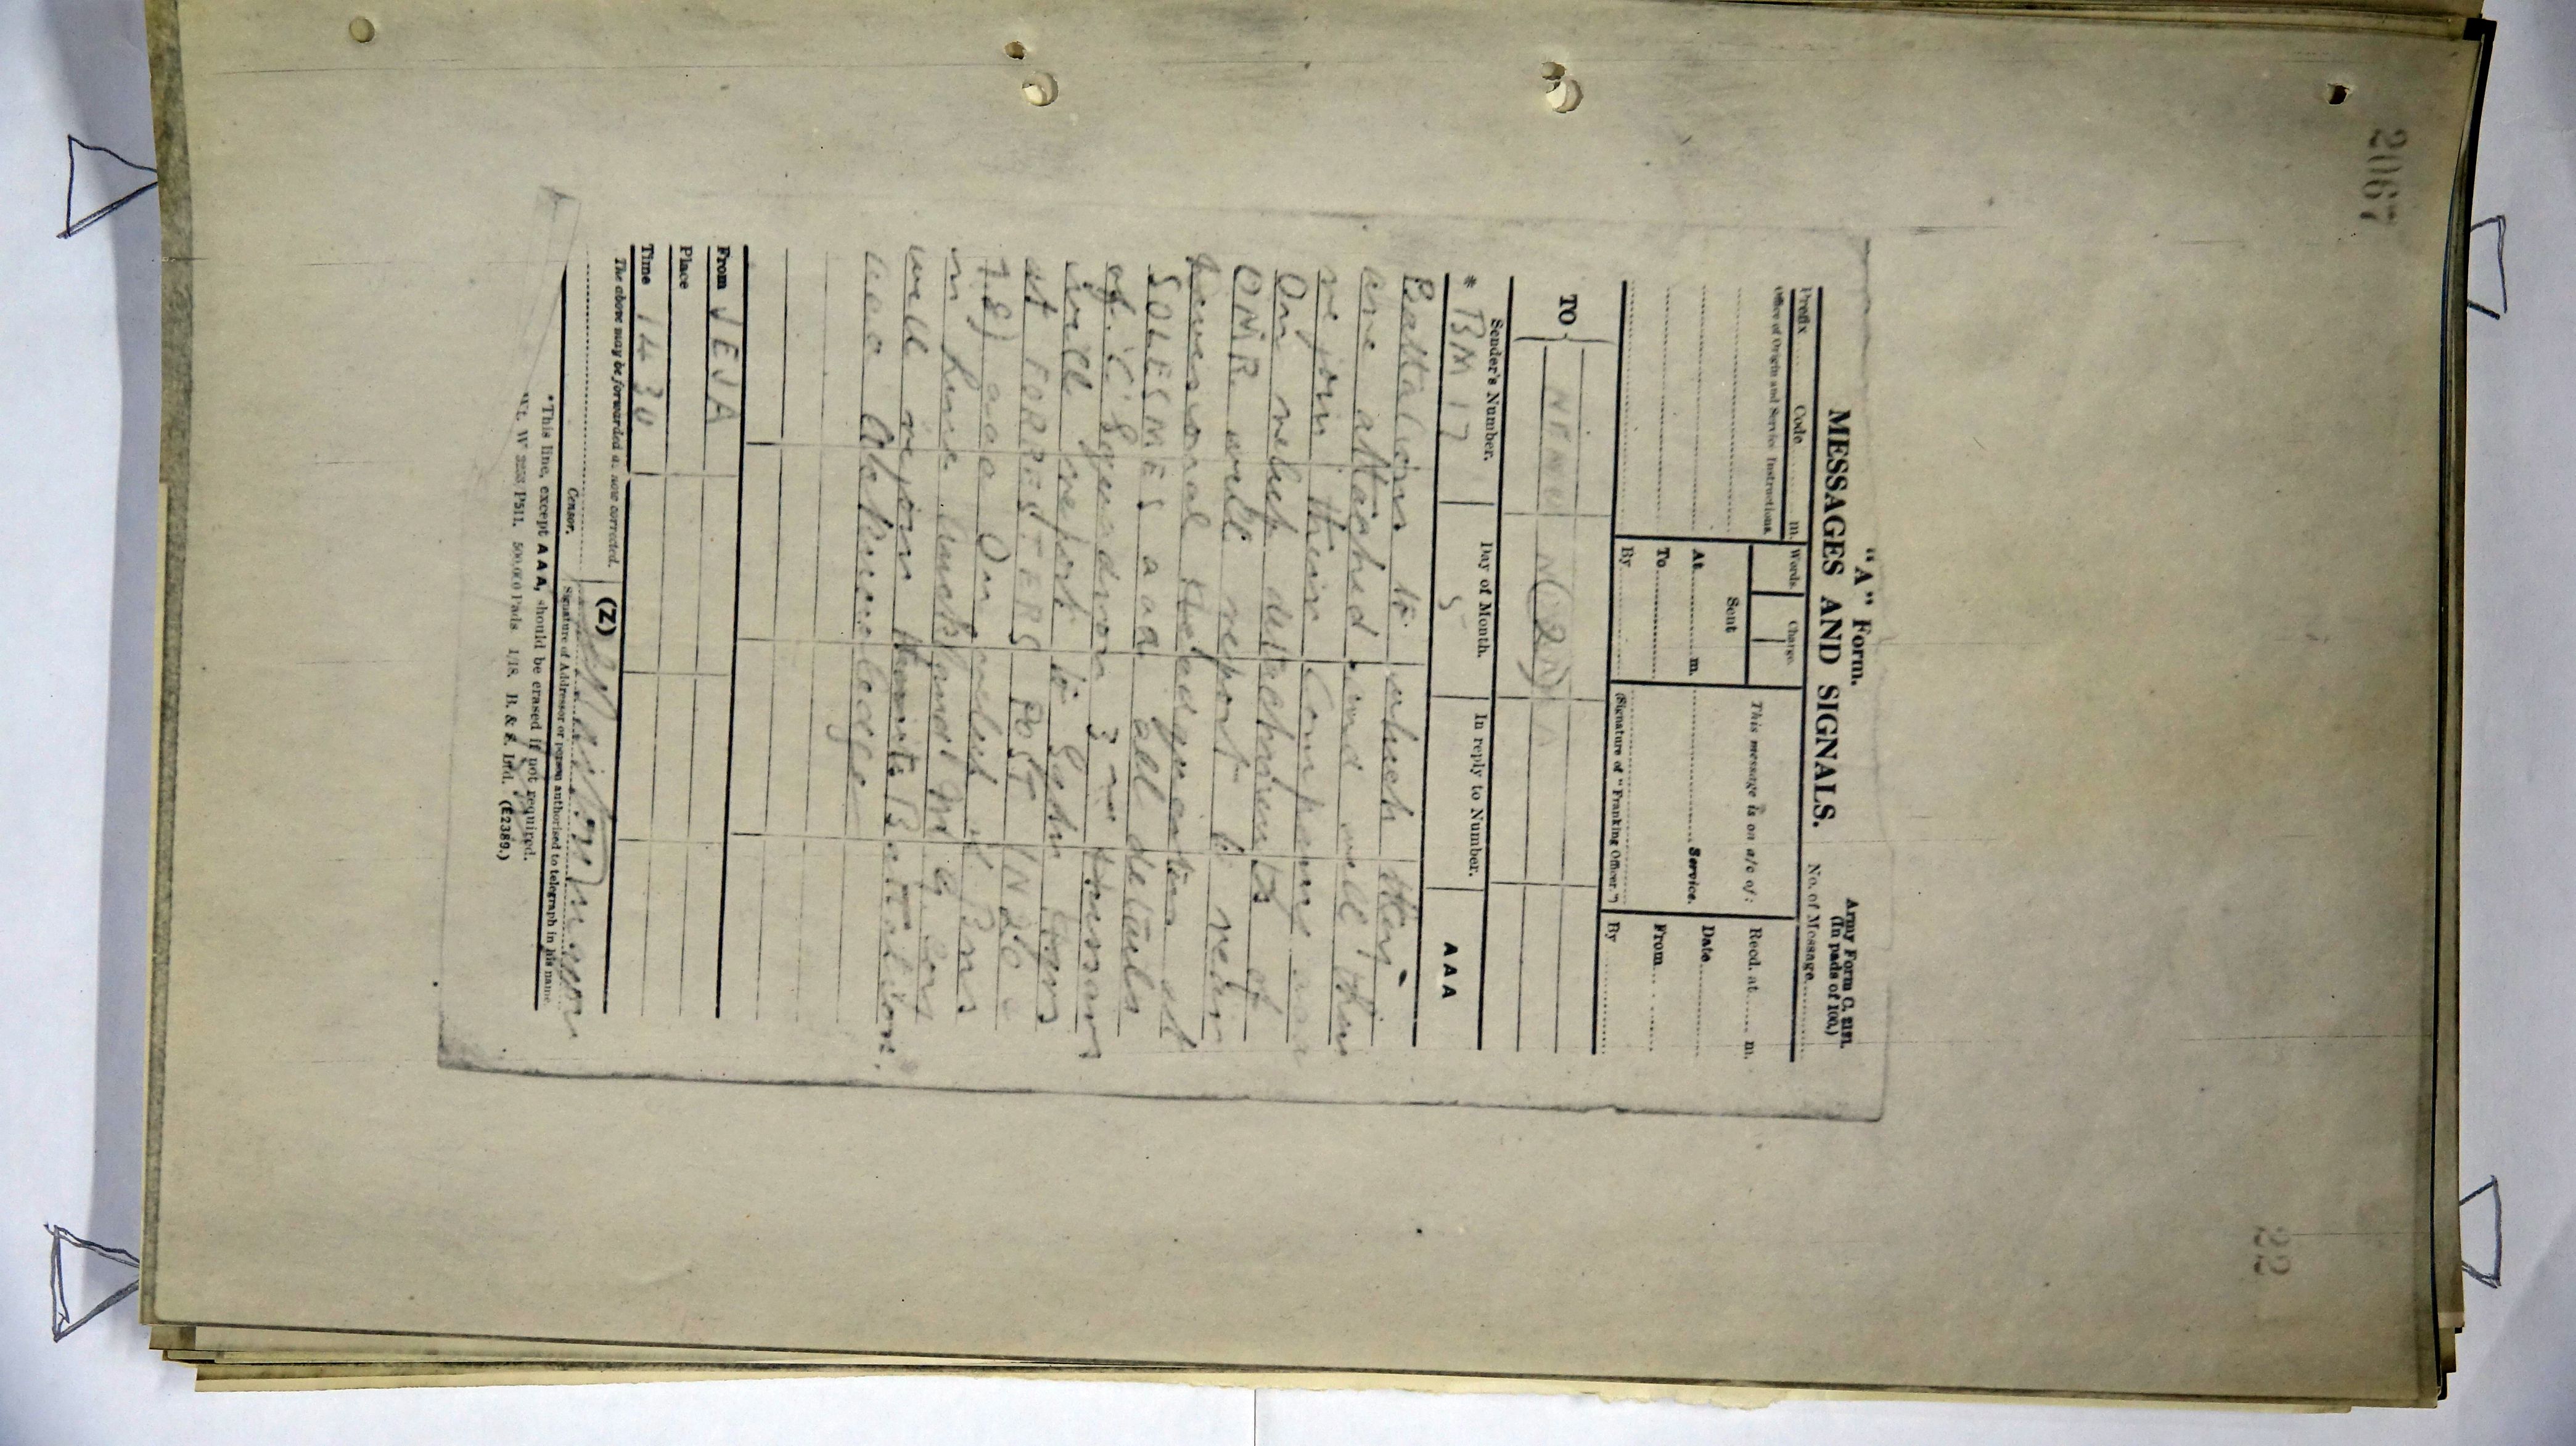 2067
22
"A" Form.
MESSAGES AND SIGNALS.
Army Form C. 2121.
(In pads of 100.)
No. of Message
Prefix Code m.
Words Charge.
Office of Origin and Service Instructions.
Sent
At m.
To
By
This message is on a/c of:
Service.
(Signature of "Franking Officer.")
Recd. at m.
Date
From
By
TO
NEMU N(2)A
Sender's Number.
Day of Month.
In reply to Number.
AAA
* BM 17
5
Battalion to which they
are attached and will then
rejoin their Company aaa
On relief detachments of
OMR will report to
Divisional Headquarters at
SOLESMES aaa all details
of 'C' Squadron 3 Hussars
will report to
at FORRESTERS POST (N26c
78) aaa On relief of Bns
in line
will rejoin Battalion
aaa Acknowledge
From JEJA
Place
Time 1430
The above may be forwarded as now corrected.
(Z)
Censor.
Signature of Addressor or person authorised to telegraph in his name
*This line, except AAA, should be erased if not required.
Wt. W 3253/P511. 500,000 Pads 1/18. B. & S. Ltd. (E2389.)